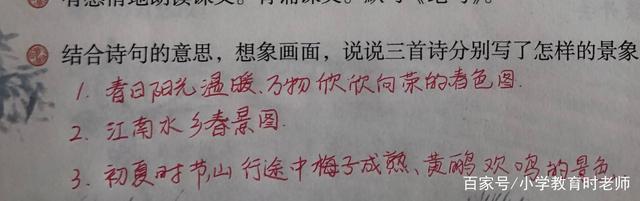 有感情地朗读课文。背诵课文。默写《绝句》。
结合诗句的意思，想象画面，说说三首诗分别写了怎样的景象
1. 春日阳光温暖、万物欣欣向荣的春色图.
2. 江南水乡春景图.
3. 初夏时节山行途中梅子成熟、黄鹂欢鸣的景色
百家号/小学教育时老师